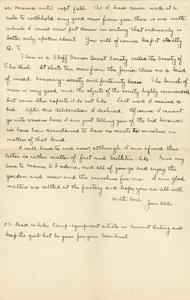 or mamma until next fall. As I have never made it a
rule to withhold any good news from you, there is one matter
which I must now put down in writing that ordinarily is
better only spoken about. You will of course keep it strictly
Q. T.
There is a Senior Secret Society called the Society of
It elects ten men from the Junior Class on a kind
of mixed honorary-society and fraternity basis. The bunch of
men is very good, and the objects of the society highly commendable
but some other aspects I do not like. Last week I received a
bid. After due deliberation I declined. Of course I cannot
go into reasons here, I am just telling you of the bid because
we have been accustomed to have no secrets to ourselves in
matters of that kind.
I will have to end now, although I am afraid this
letter is rather matter of fact and bulletin-like. Give my
love to mamma & Isidore, and all of you go and enjoy the
garden and view and the sunshine for me. I am glad
matters are settled at the factory and hope you are all well.
With love
P.S. Read White's Camp-equipment article on Summit hunting and
keep the gist but be goose for your lean hunt.